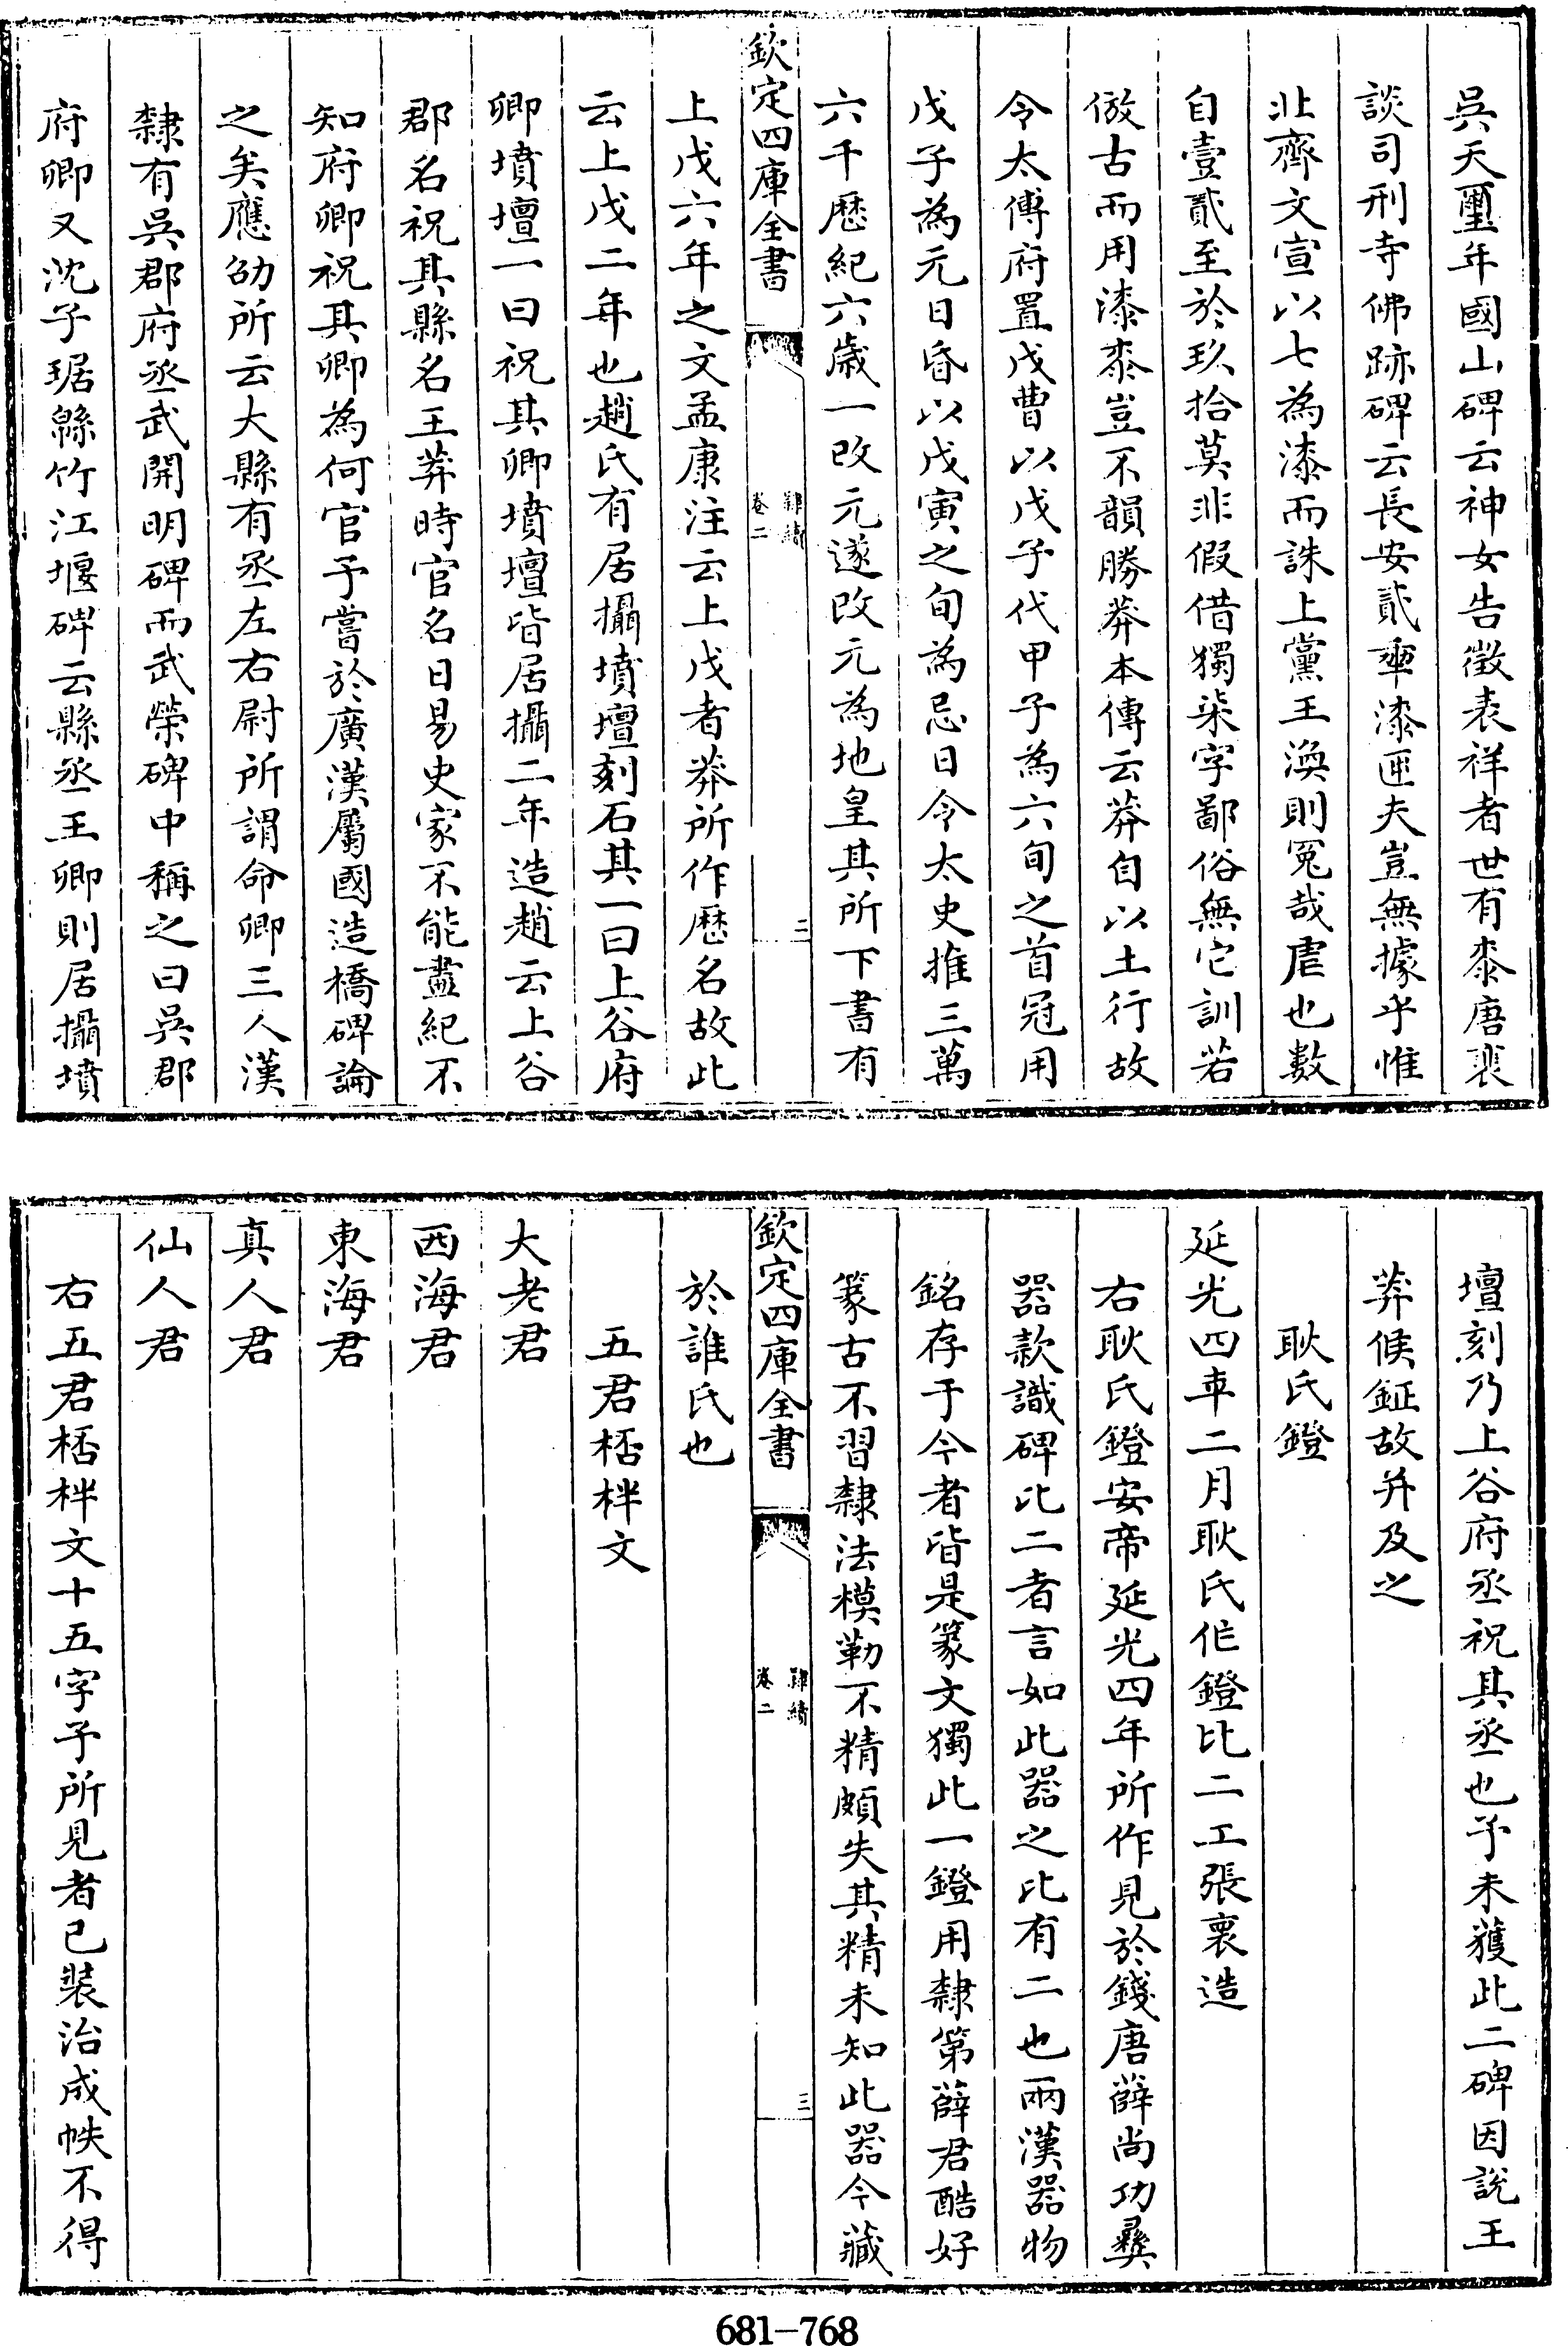 吳天璽年國山碑云神女告徵表祥者世有桼唐裴
談司刑寺佛跡碑云長安貳䡄漆匝夫豈無據乎惟
北齊文宣以七為漆而誅上黨王渙則冤哉虐也數
自壹貳至於玖拾莫非假借獨柒字鄙俗無它訓若
倣古而用漆桼豈不韻勝莽本傳云莽自以土行故
令太傅府置戊曹以戊子代甲子為六旬之首冠用
戊子為元日昏以戊寅之旬為忌日令太史推三萬
六千歷紀六歲一改元遂改元為地皇其所下書有
欽定四庫全書
隸續
卷二
二
上戊六年之文孟康注云上戊者莽所作歷名故此
云上戊二年也趙氏有居攝墳壇刻石其一曰上谷府
卿墳壇一曰祝其卿墳壇皆居攝二年造趙云上谷
郡名祝其縣名王莽時官名日易史家不能盡紀不
知府卿祝其卿為何官予嘗於廣漢屬國造橋碑論
之矣應劭所云大縣有丞左右尉所謂命卿三人漢
隸有吳郡府丞武開明碑而武榮碑中稱之曰吳郡
府卿又沈子琚緜竹江堰碑云縣丞王卿則居攝墳
壇刻乃上谷府丞祝其丞也予未獲此二碑因說王
莽候鉦故并及之
耿氏鐙
延光四年二月耿氏作鐙比二工張襄造
右耿氏鐙安帝延光四年所作見於錢唐薛尚功彝
器款識碑比二者言如此器之比有二也兩漢器物
銘存于今者皆是篆文獨此一鐙用隸第薛君酷好
篆古不習隸法模勒不精頗失其精未知此器今藏
欽定四庫全書
隸續
卷二
三
於誰氏也
五君桮柈文
大老君
西海君
東海君
真人君
仙人君
右五君桮柈文十五字予所見者已裝治成帙不得
681-768